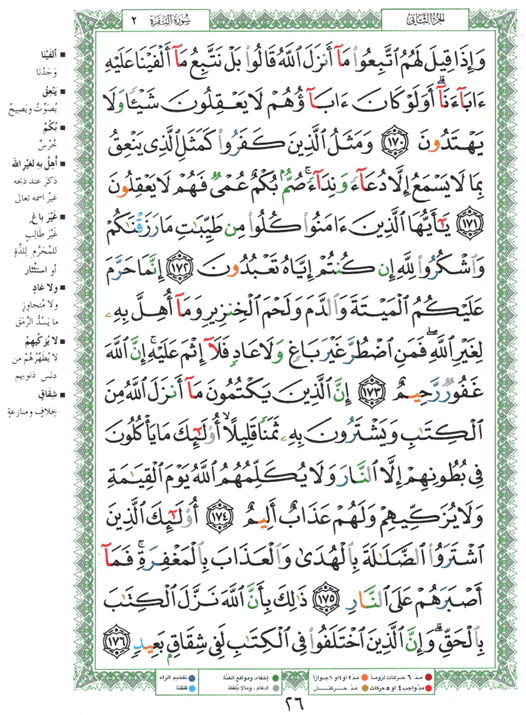 الجزء الثاني
سورة البقرة
٢
وَإِذَا قِيلَ لَهُمُ ٱتَّبِعُوا۟ مَآ أَنزَلَ ٱللَّهُ قَالُوا۟ بَلْ نَتَّبِعُ مَآ أَلْفَيْنَا عَلَيْهِ
ءَابَآءَنَآ ۗ أَوَلَوْ كَانَ ءَابَآؤُهُمْ لَا يَعْقِلُونَ شَيْـًٔا وَلَا
يَهْتَدُونَ ١٧٠ وَمَثَلُ ٱلَّذِينَ كَفَرُوا۟ كَمَثَلِ ٱلَّذِى يَنْعِقُ
بِمَا لَا يَسْمَعُ إِلَّا دُعَآءً وَنِدَآءً ۚ صُمٌّۢ بُكْمٌ عُمْىٌ فَهُمْ لَا يَعْقِلُونَ
١٧١ يَـٰٓأَيُّهَا ٱلَّذِينَ ءَامَنُوا۟ كُلُوا۟ مِن طَيِّبَـٰتِ مَا رَزَقْنَـٰكُمْ
وَٱشْكُرُوا۟ لِلَّهِ إِن كُنتُمْ إِيَّاهُ تَعْبُدُونَ ١٧٢ إِنَّمَا حَرَّمَ
عَلَيْكُمُ ٱلْمَيْتَةَ وَٱلدَّمَ وَلَحْمَ ٱلْخِنزِيرِ وَمَآ أُهِلَّ بِهِۦ
لِغَيْرِ ٱللَّهِ ۖ فَمَنِ ٱضْطُرَّ غَيْرَ بَاغٍ وَلَا عَادٍ فَلَآ إِثْمَ عَلَيْهِ ۚ إِنَّ ٱللَّهَ
غَفُورٌ رَّحِيمٌ ١٧٣ إِنَّ ٱلَّذِينَ يَكْتُمُونَ مَآ أَنزَلَ ٱللَّهُ مِنَ
ٱلْكِتَـٰبِ وَيَشْتَرُونَ بِهِۦ ثَمَنًا قَلِيلًا ۙ أُو۟لَـٰٓئِكَ مَا يَأْكُلُونَ
فِى بُطُونِهِمْ إِلَّا ٱلنَّارَ وَلَا يُكَلِّمُهُمُ ٱللَّهُ يَوْمَ ٱلْقِيَـٰمَةِ
وَلَا يُزَكِّيهِمْ وَلَهُمْ عَذَابٌ أَلِيمٌ ١٧٤ أُو۟لَـٰٓئِكَ ٱلَّذِينَ
ٱشْتَرَوُا۟ ٱلضَّلَـٰلَةَ بِٱلْهُدَىٰ وَٱلْعَذَابَ بِٱلْمَغْفِرَةِ ۚ فَمَآ
أَصْبَرَهُمْ عَلَى ٱلنَّارِ ١٧٥ ذَٰلِكَ بِأَنَّ ٱللَّهَ نَزَّلَ ٱلْكِتَـٰبَ
بِٱلْحَقِّ ۗ وَإِنَّ ٱلَّذِينَ ٱخْتَلَفُوا۟ فِى ٱلْكِتَـٰبِ لَفِى شِقَاقٍۭ بَعِيدٍ ١٧٦
■ أَلْفَيْنَا
وَجَدْنَا
■ يَنْعِقُ
يُصَوِّتُ ويَصيحُ
■ بُكْمٌ
خُرْسٌ
■ أُهِلَّ بِهِ لِغَيْرِ الله
ذكر عند ذبحه
غيرُ اسمه تعالى
■ غَيْرَ بَاغٍ
غَيْرَ طَالِبٍ
للمُحَرَّمِ لِلَذَّةٍ
أو استئثار
■ ولا عادٍ
ولا مُتجاوزٍ
ما يَسُدُّ الرَّمَق
■ لا يُزَكِّيهِمْ
لا يُطَهِّرُهُمْ من
دنس ذنوبهم
■ شِقَاقٍ
خِلافٍ ومنازعةٍ
مدّ ٦ حركات لزوماً
مدّ ٢ أو ٤ أو ٦ جوازاً
مدّ واجب ٤ أو ٥ حركات
مدّ حركتان
إخفاء، ومواقع الغُنَّة
ادغام، وما لا يُلفَظ
تفخيم الراء
قلقلة
٢٦